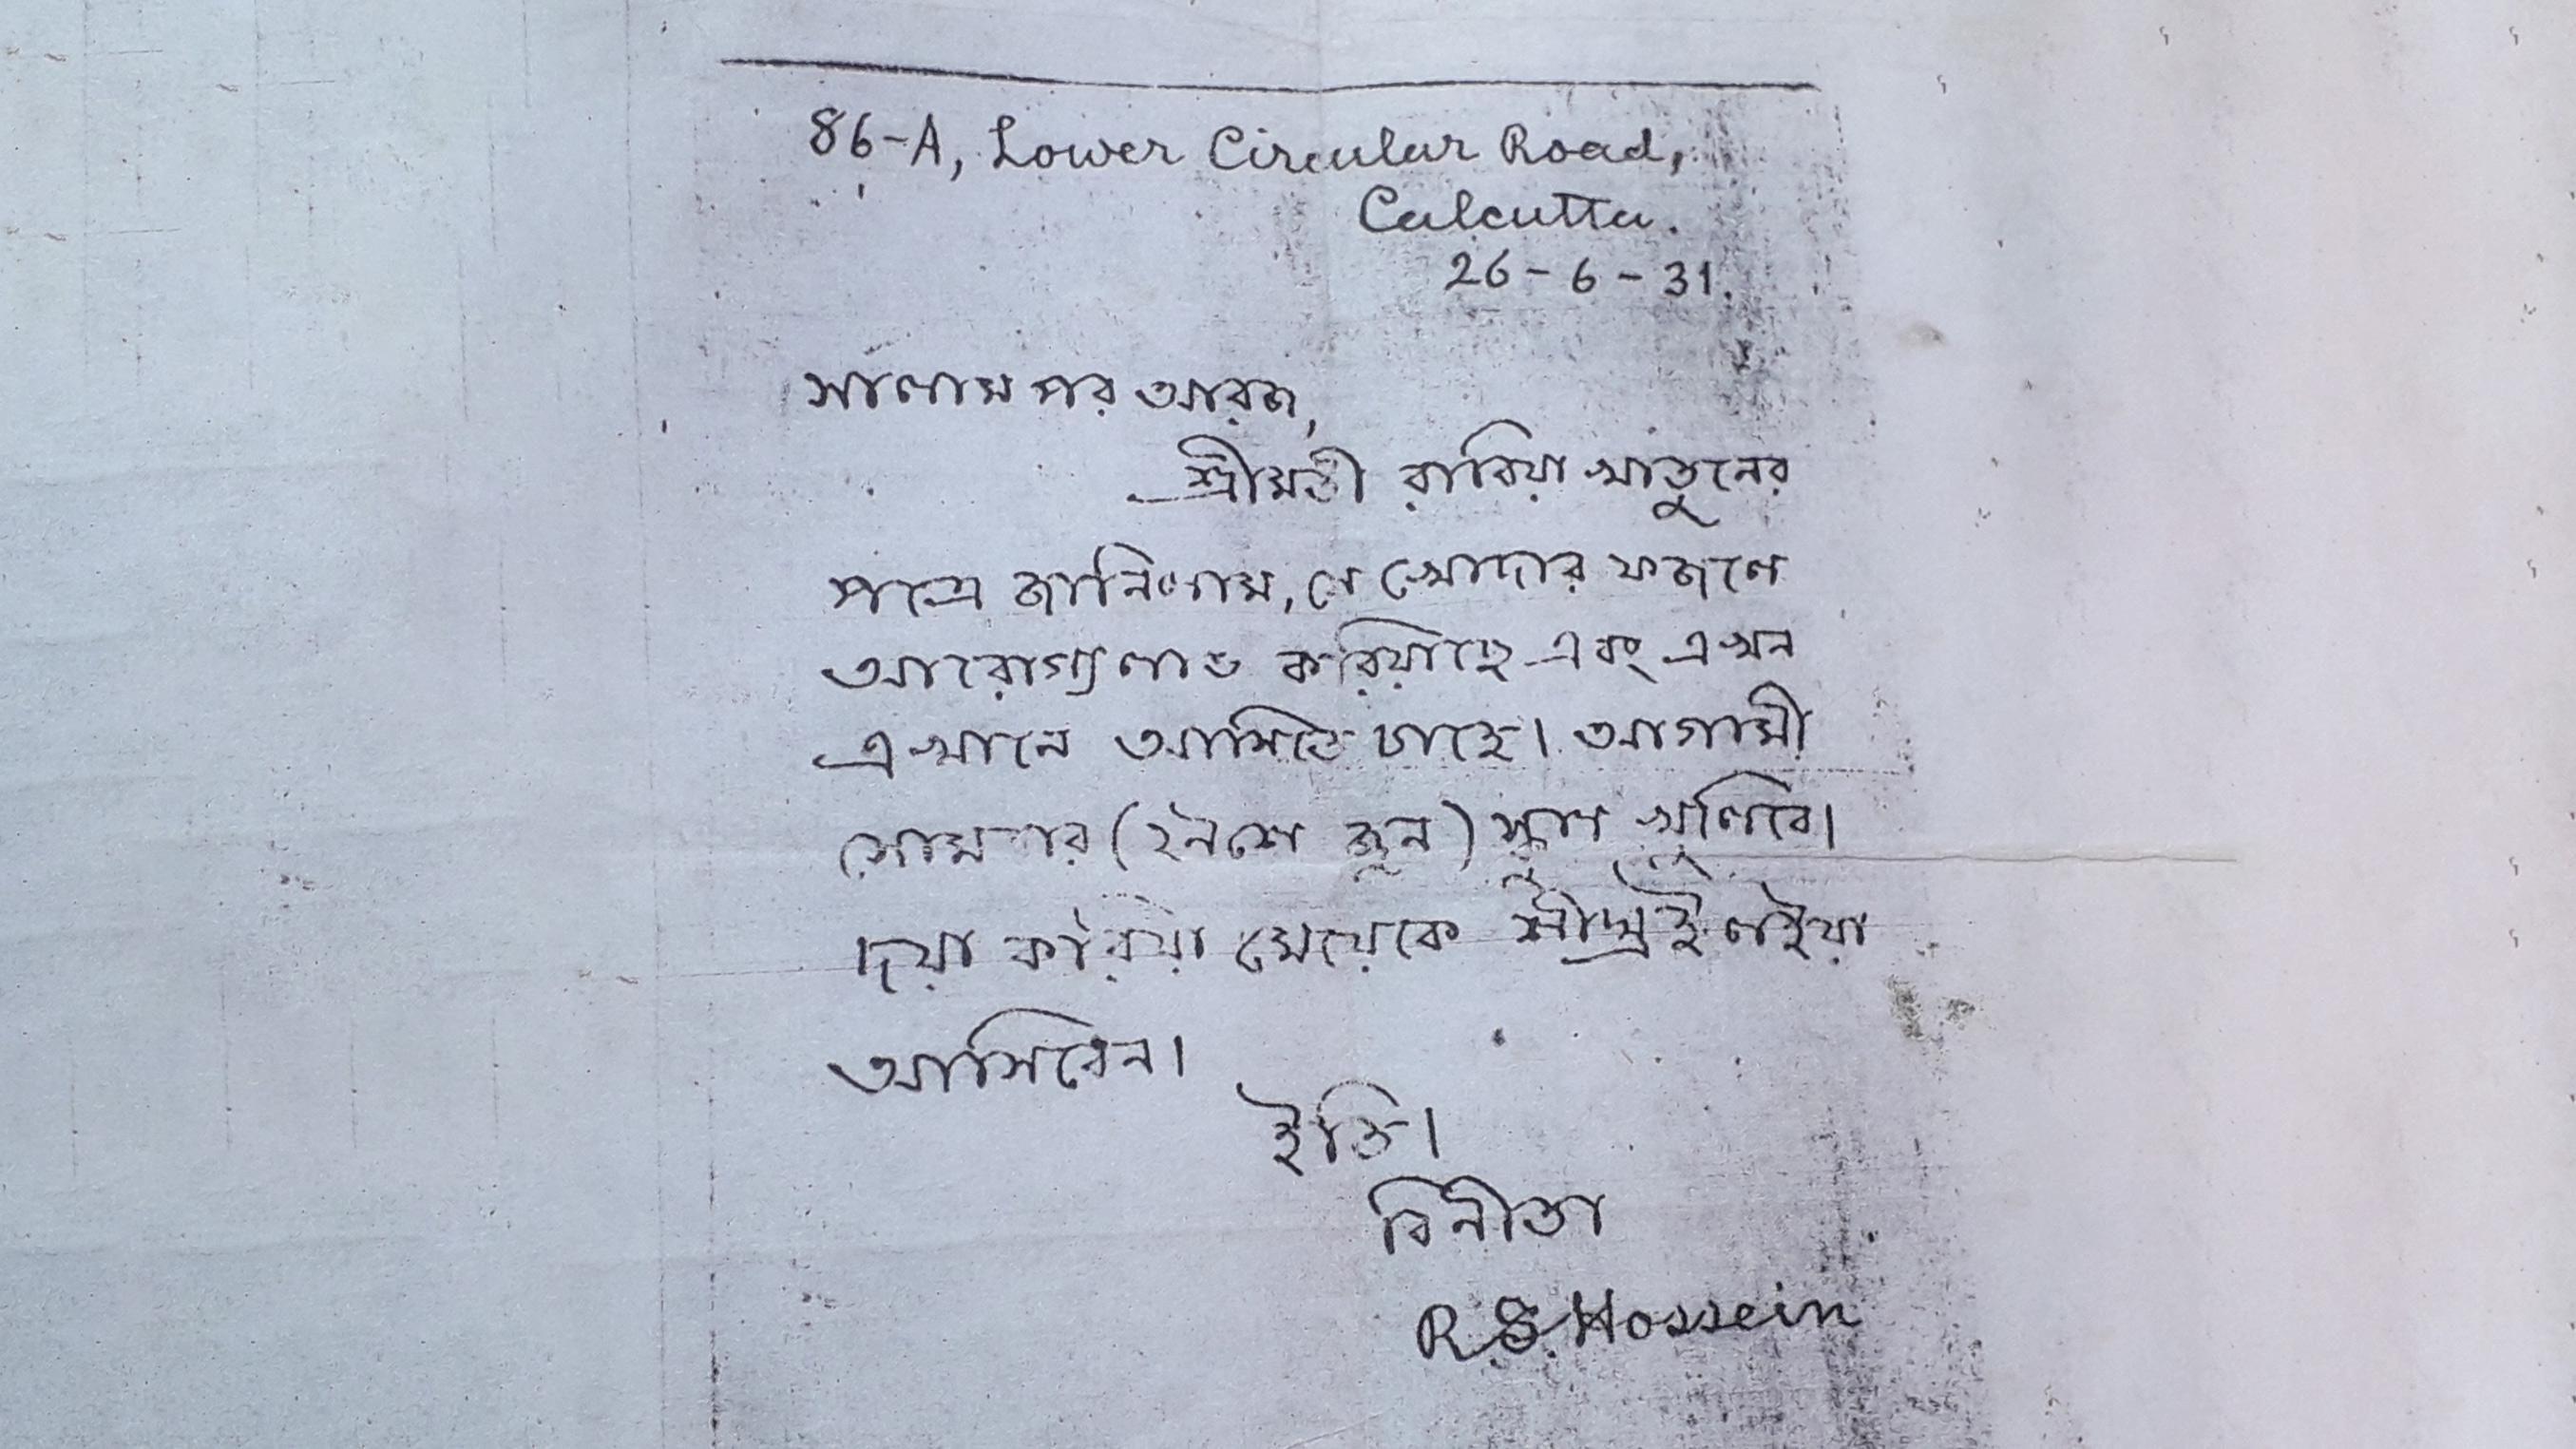 86-A, Lower Circular Road,
Calcutta.
26-6-31.
সালাম পর আরজ,
শ্রীমতী রাবিয়া খাতুনের
পত্রে জানিলাম, সে খোদার ফজলে
আরোগ্যলাভ করিয়াছে এবং এখন
এখানে আসিতে চাহে। আগামী
সোমবার (২৯শে জুন) স্কুল খুলিবে।
দয়া করিয়া মেয়েকে শীঘ্রই লইয়া
আসিবেন।
ইতি।
বিনীতা
R. S. Hossein